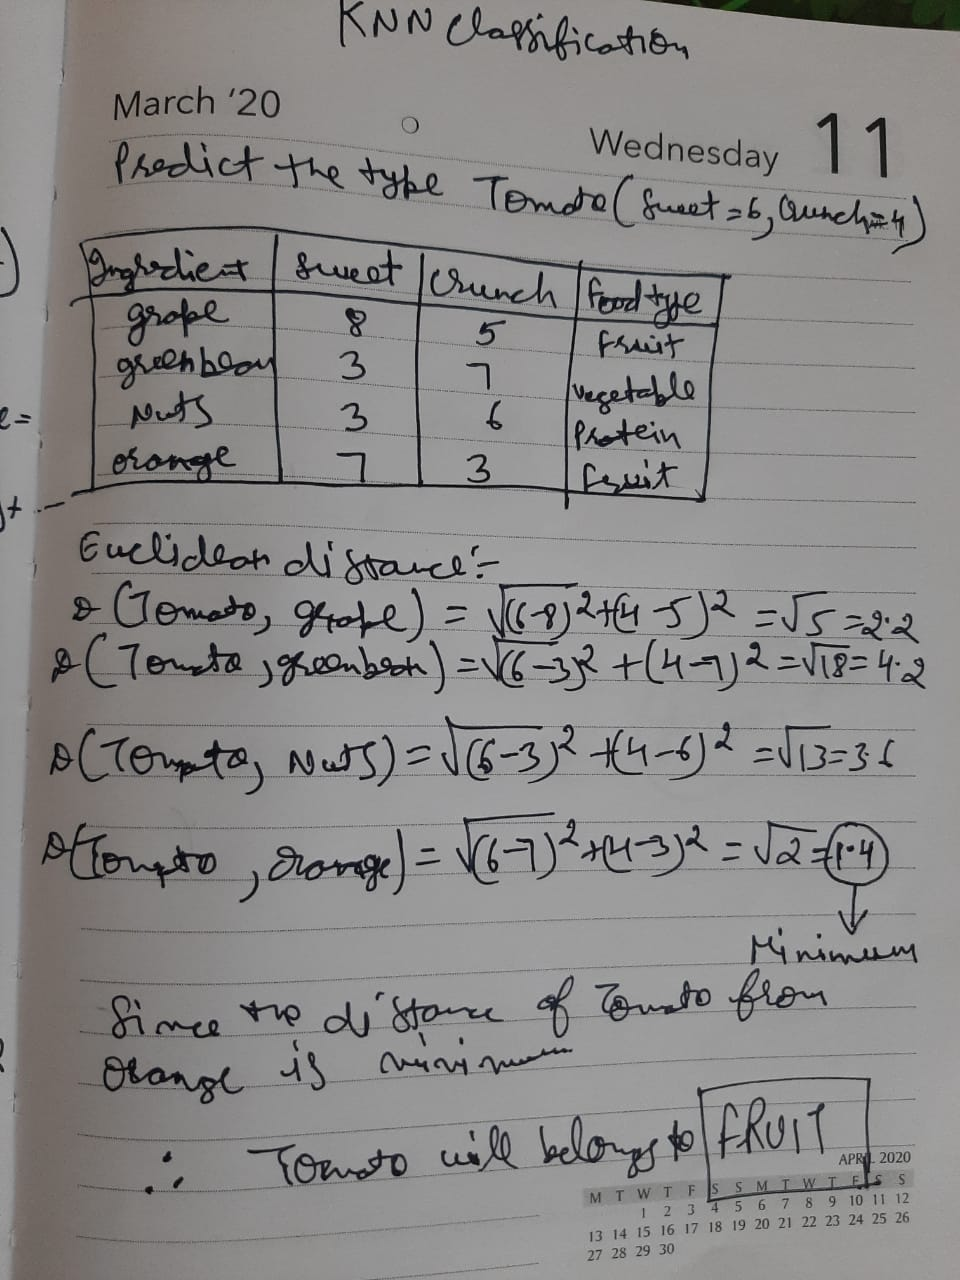 KNN Classification
March '20
Wednesday 11
Predict the type Tomato (Sweet = 6, Crunch = 4)
Ingredient Sweet Crunch Food type
grape 8 5 Fruit
greenbean 3 7 Vegetable
Nuts 3 6 Protein
orange 7 3 Fruit
e =
Euclidean distance :-
D (Tomato, grape) = √(6-8)²+(4-5)² = √5 = 2.2
D (Tomato, greenbean) = √(6-3)² + (4-7)² = √18 = 4.2
D (Tomato, Nuts) = √(6-3)² + (4-6)² = √13 = 3.6
D (Tomato, orange) = √(6-7)² + (4-3)² = √2 = 1.4
↓
Minimum
Since the distance of Tomato from
orange is minimum
∴ Tomato will belongs to FRUIT
APRIL 2020
M T W T F S S M T W T F S S
1 2 3 4 5 6 7 8 9 10 11 12
13 14 15 16 17 18 19 20 21 22 23 24 25 26
27 28 29 30